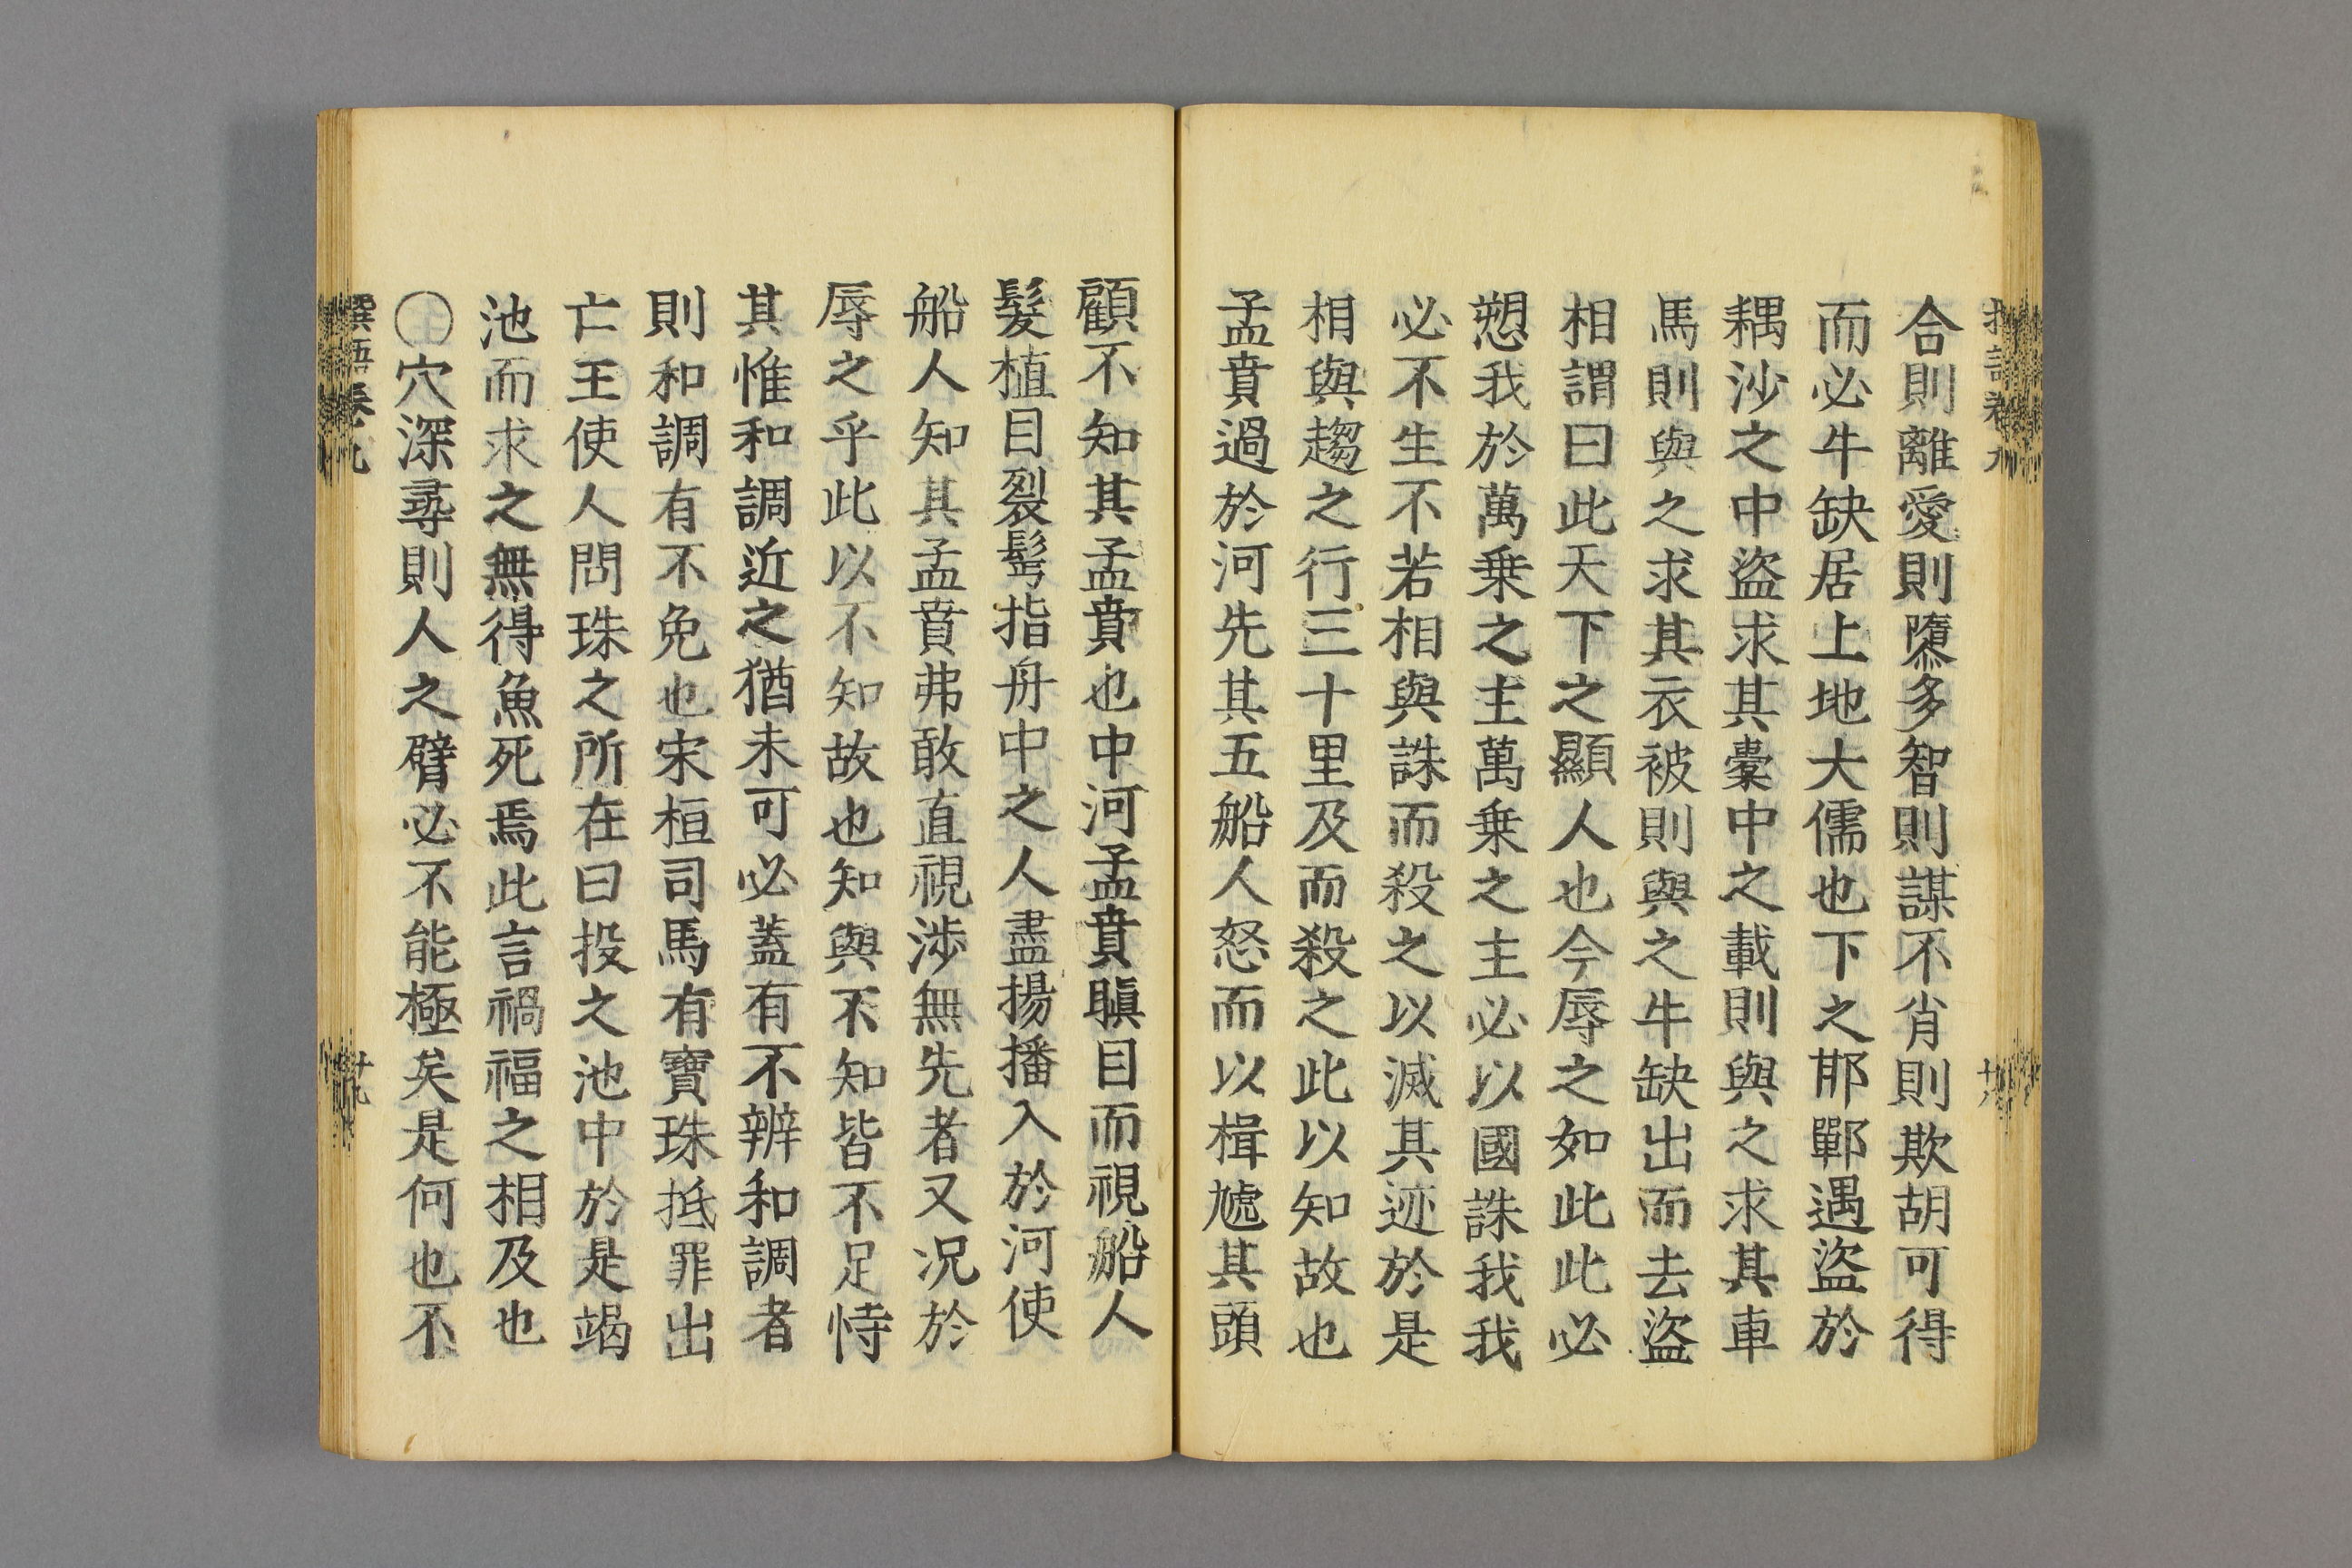 合則離愛則隳多智則謀不肖則欺胡可得
而必牛缺居上地大儒也下之邯鄲遇盜於
耦沙之中盜求其橐中之載則與之求其車
馬則與之求其衣被則與之牛缺出而去盜
相謂曰此天下之顯人也今辱之如此此必
愬我於萬乗之主萬乗之主必以國誅我我
必不生不若相與誅而殺之以滅其迹於是
相與趨之行三十里及而殺之此以知故也
孟賁過於河先其五船人怒而以楫虓其頭
顧不知其孟賁也中河孟賁瞋目而視船人
髮植目裂髩指舟中之人盡揚播入於河使
船人知其孟賁弗敢直視涉無先者又况於
辱之乎此以不知故也知與不知皆不足恃
其惟和調近之猶未可必蓋有不辨和調者
則和調有不免也宋桓司馬有寶珠抵罪出
亡王使人問珠之所在曰投之池中於是竭
池而求之無得魚死焉此言禍福之相及也
〇穴深尋則人之臂必不能極矣是何也不
卷九